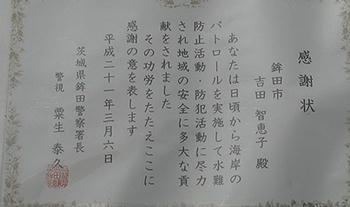 感謝状
鉾田市
吉田 智恵子 殿
あなたは日頃から海岸の
パトロールを実施して水難
防止活動・防犯活動に尽力
され地域の安全に多大な貢
献をされました
その功労をたたえここに
感謝の意を表します
平成二十一年三月六日
茨城県鉾田警察署長
警視 粟生 泰久